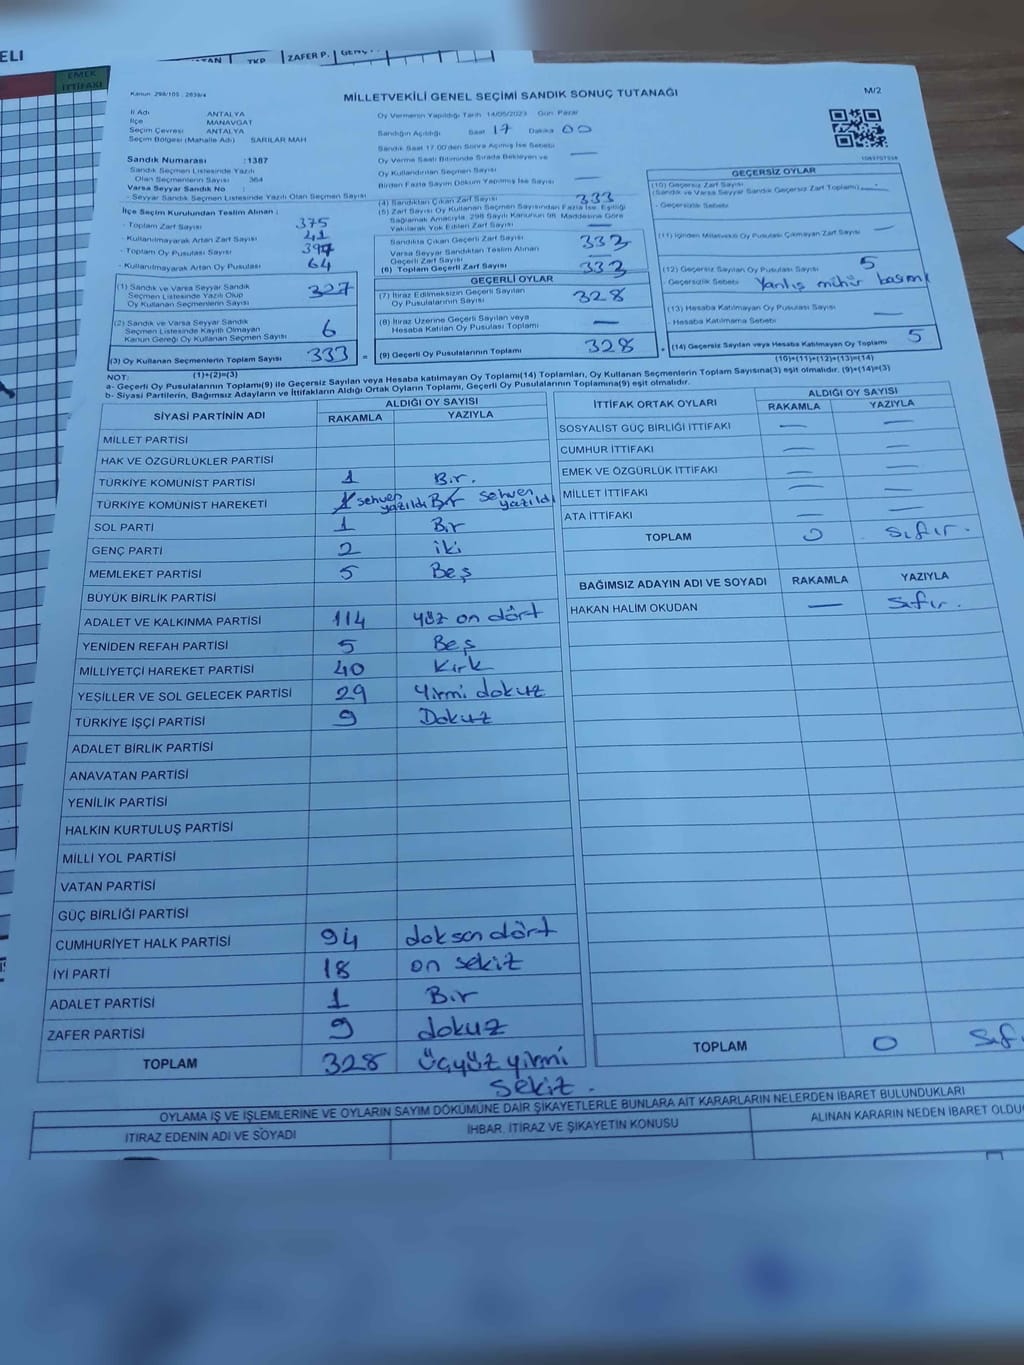 ELİ
TKP
ZAFER P.
EMEK
İTTİFAKI
MİLLETVEKİLİ GENEL SEÇİMİ SANDIK SONUÇ TUTANAĞI
M/2
İl Adı ANTALYA
İlçe MANAVGAT
Seçim Çevresi ANTALYA
Seçim Bölgesi (Mahalle Adı) SARILAR MAH
Sandık Numarası : 1387
Sandık Seçmen Listesinde Yazılı
Olan Seçmenlerin Sayısı : 364
Varsa Seyyar Sandık No :
- Seyyar Sandık Seçmen Listesinde Yazılı Olan Seçmen Sayısı
Oy Vermenin Yapıldığı Tarih 14/05/2023 Gün Pazar
Sandığın Açıldığı Saat 17 Dakika 00
Sandık Saat 17.00'den Sonra Açılmış İse Sebebi
Oy Verme Saati Bitiminde Sırada Bekleyen ve
Oy Kullandırılan Seçmen Sayısı —
Birden Fazla Sayım Döküm Yapılmış İse Sayısı —
İlçe Seçim Kurulundan Teslim Alınan :
- Toplam Zarf Sayısı 375
- Kullanılmayarak Artan Zarf Sayısı 41
- Toplam Oy Pusulası Sayısı 397
- Kullanılmayarak Artan Oy Pusulası 64
(1) Sandık ve Varsa Seyyar Sandık
Seçmen Listesinde Yazılı Olup
Oy Kullanan Seçmenlerin Sayısı 327
(2) Sandık ve Varsa Seyyar Sandık
Seçmen Listesinde Kayıtlı Olmayan
Kanun Gereği Oy Kullanan Seçmen Sayısı 6
(3) Oy Kullanan Seçmenlerin Toplam Sayısı 333 =
(1)+(2)=(3)
(4) Sandıktan Çıkan Zarf Sayısı 333
(5) Zarf Sayısı Oy Kullanan Seçmen Sayısından Fazla İse, Eşitliği
Sağlamak Amacıyla, 298 Sayılı Kanunun 98. Maddesine Göre
Yakılarak Yok Edilen Zarf Sayısı —
Sandıkta Çıkan Geçerli Zarf Sayısı 333
Varsa Seyyar Sandıktan Teslim Alınan
Geçerli Zarf Sayısı —
(6) Toplam Geçerli Zarf Sayısı 333
GEÇERLİ OYLAR
(7) İtiraz Edilmeksizin Geçerli Sayılan
Oy Pusulalarının Sayısı 328
(8) İtiraz Üzerine Geçerli Sayılan veya
Hesaba Katılan Oy Pusulası Toplamı —
(9) Geçerli Oy Pusulalarının Toplamı 328 +
GEÇERSİZ OYLAR
(10) Geçersiz Zarf Sayısı
(Sandık ve Varsa Seyyar Sandık Geçersiz Zarf Toplamı) —
- Geçersizlik Sebebi
(11) İçinden Milletvekili Oy Pusulası Çıkmayan Zarf Sayısı —
(12) Geçersiz Sayılan Oy Pusulası Sayısı 5
- Geçersizlik Sebebi Yanlış mühür basımı
(13) Hesaba Katılmayan Oy Pusulası Sayısı —
- Hesaba Katılmama Sebebi
(14) Geçersiz Sayılan veya Hesaba Katılmayan Oy Toplamı 5
(10)+(11)+(12)+(13)=(14)
NOT:
a- Geçerli Oy Pusulalarının Toplamı(9) ile Geçersiz Sayılan veya Hesaba katılmayan Oy Toplamı(14) Toplamları, Oy Kullanan Seçmenlerin Toplam Sayısına(3) eşit olmalıdır. (9)+(14)=(3)
b- Siyasi Partilerin, Bağımsız Adayların ve İttifakların Aldığı Ortak Oyların Toplamı, Geçerli Oy Pusulalarının Toplamına(9) eşit olmalıdır.
SİYASİ PARTİNİN ADI ALDIĞI OY SAYISI
RAKAMLA YAZIYLA
MİLLET PARTİSİ
HAK VE ÖZGÜRLÜKLER PARTİSİ
TÜRKİYE KOMÜNİST PARTİSİ 1 Bir.
TÜRKİYE KOMÜNİST HAREKETİ 1 sehven yazıldı Bir sehven yazıldı
SOL PARTİ 1 Bir
GENÇ PARTİ 2 iki
MEMLEKET PARTİSİ 5 Beş
BÜYÜK BİRLİK PARTİSİ
ADALET VE KALKINMA PARTİSİ 114 yüz on dört
YENİDEN REFAH PARTİSİ 5 Beş
MİLLİYETÇİ HAREKET PARTİSİ 40 Kırk
YEŞİLLER VE SOL GELECEK PARTİSİ 29 Yirmi dokuz
TÜRKİYE İŞÇİ PARTİSİ 9 Dokuz
ADALET BİRLİK PARTİSİ
ANAVATAN PARTİSİ
YENİLİK PARTİSİ
HALKIN KURTULUŞ PARTİSİ
MİLLİ YOL PARTİSİ
VATAN PARTİSİ
GÜÇ BİRLİĞİ PARTİSİ
CUMHURİYET HALK PARTİSİ 94 doksan dört
İYİ PARTİ 18 on sekiz
ADALET PARTİSİ 1 Bir
ZAFER PARTİSİ 9 dokuz
TOPLAM 328 üçyüz yirmi
sekiz.
İTTİFAK ORTAK OYLARI ALDIĞI OY SAYISI
RAKAMLA YAZIYLA
SOSYALİST GÜÇ BİRLİĞİ İTTİFAKI — —
CUMHUR İTTİFAKI — —
EMEK VE ÖZGÜRLÜK İTTİFAKI — —
MİLLET İTTİFAKI — —
ATA İTTİFAKI — —
TOPLAM 0 Sıfır.
BAĞIMSIZ ADAYIN ADI VE SOYADI RAKAMLA YAZIYLA
HAKAN HALİM OKUDAN — Sıfır.
TOPLAM 0 Sıf
OYLAMA İŞ VE İŞLEMLERİNE VE OYLARIN SAYIM DÖKÜMÜNE DAİR ŞİKAYETLERLE BUNLARA AİT KARARLARIN NELERDEN İBARET BULUNDUKLARI
İTİRAZ EDENİN ADI VE SOYADI İHBAR, İTİRAZ VE ŞİKAYETİN KONUSU ALINAN KARARIN NEDEN İBARET OLDU